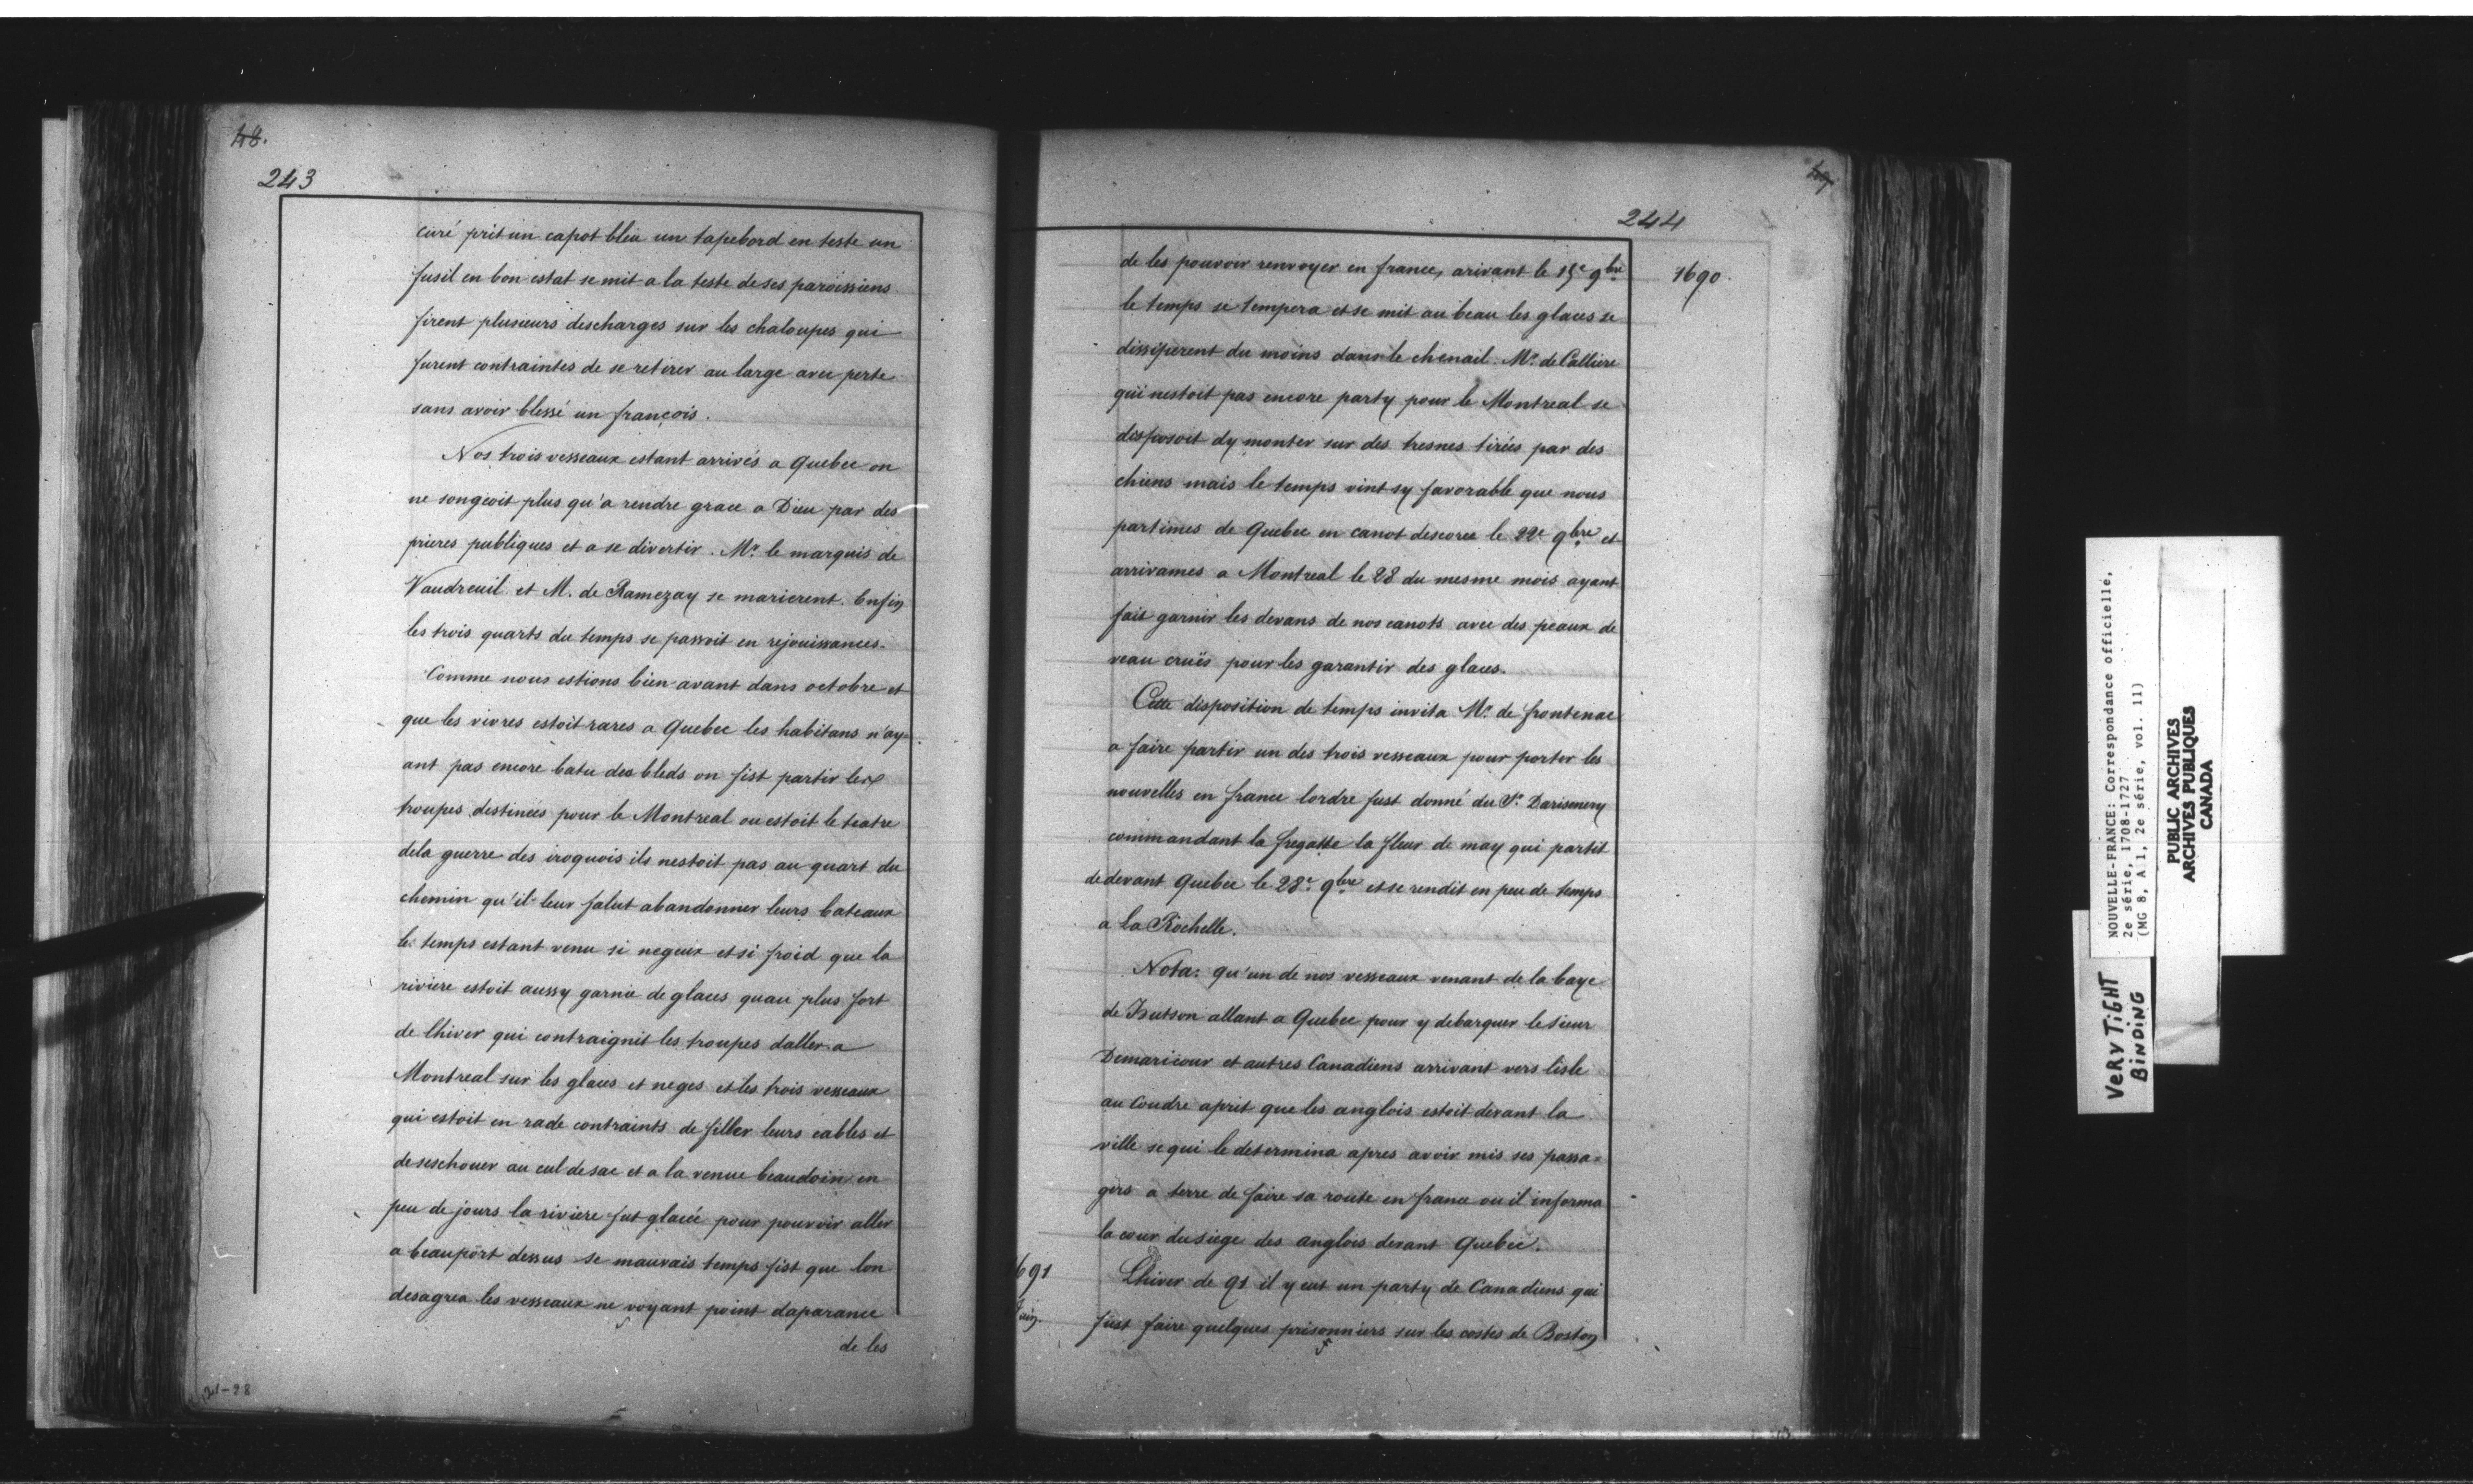 48.
243
curé prit un capot bleu un tapebord en teste un
fusil en bon estat se mit a la teste de ses paroissiens
firent plusieurs descharges sur les chaloupes qui
furent contraintes de se retirer au large avec perte
sans avoir blessé un françois.
Nos trois vesseaux estant arrivés a Quebec on
ne songeoit plus qu'a rendre grace a Dieu par des
prieres publiques et a se divertir. Mr. le marquis de
Vaudreuil et M. de Ramezay se marierent. Enfin
les trois quarts du temps se passoit en rejouissances.
Comme nous estions bien avant dans octobre et
que les vivres estoit rares a Quebec les habitans n'ay=
ant pas encore batu des bleds on fist partir les
troupes destinées pour le Montreal ou estoit le teatre
dela guerre des iroquois ils nestoit pas au quart du
chemin qu'il leur falut abandonner leurs bateaux
le temps estant venu si negeux et si froid que la
riviere estoit aussy garnie de glaces quau plus fort
de lhiver qui contraignit les troupes daller a
Montreal sur les glaces et neges et les trois vesseaux
qui estoit en rade contraints de filler leurs cables et
de seschouer au cul de sac et a la venue beaudoin en
peu de jours la riviere fut glacée pour pouvoir aller
a beauport dessus se mauvais temps fist que lon
desagrea les vesseaux ne voyant point daparance
de les
244
1690.
de les pouvoir renvoyer en france, arivant le 15e 9bre
le temps se tempera et se mit au beau les glaces se
dissiperent du moins dans le chenail. Mr. de Calliere
qui nestoit pas encore party pour le Montreal se
disposoit dy monter sur des tresnes tirées par des
chiens mais le temps vint sy favorable que nous
partimes de Quebec en canot descorce le 22e 9bre et
arrivames a Montreal le 28 du mesme mois ayant
fait garnir les devans de nos canots avec des peaux de
veau cruës pour les garantir des glaces.
Cette disposition de temps invita Mr. de frontenac
a faire partir un des trois vesseaux pour porter les
nouvelles en france lordre fust donné du Sr.
commandant la fregatte la fleur de may qui partit
de devant Quebec le 28e. 9bre et se rendit en peu de temps
a la Rochelle.
Nota: qu'un de nos vesseaux venant de la baye
de Hutson allant a Quebec pour y debarquer le sieur
Demaricour et autres Canadiens arrivant vers lisle
au Coudre aprit que les anglois estoit devant la
ville se qui le determina apres avoir mis ses passa=
gers a terre de faire sa route en france ou il informa
la cour du siege des anglois devant Quebec.
1691
Juin.
Lhiver de 91 il y eut un party de Canadiens qui
fust faire quelques prisonniers sur les costes de Boston
NOUVELLE-FRANCE: Correspondance officielle,
2e série, 1708-1727
(MG 8, A 1, 2e série, vol. 11)
PUBLIC ARCHIVES
ARCHIVES PUBLIQUES
CANADA
VERY TIGHT
BINDING